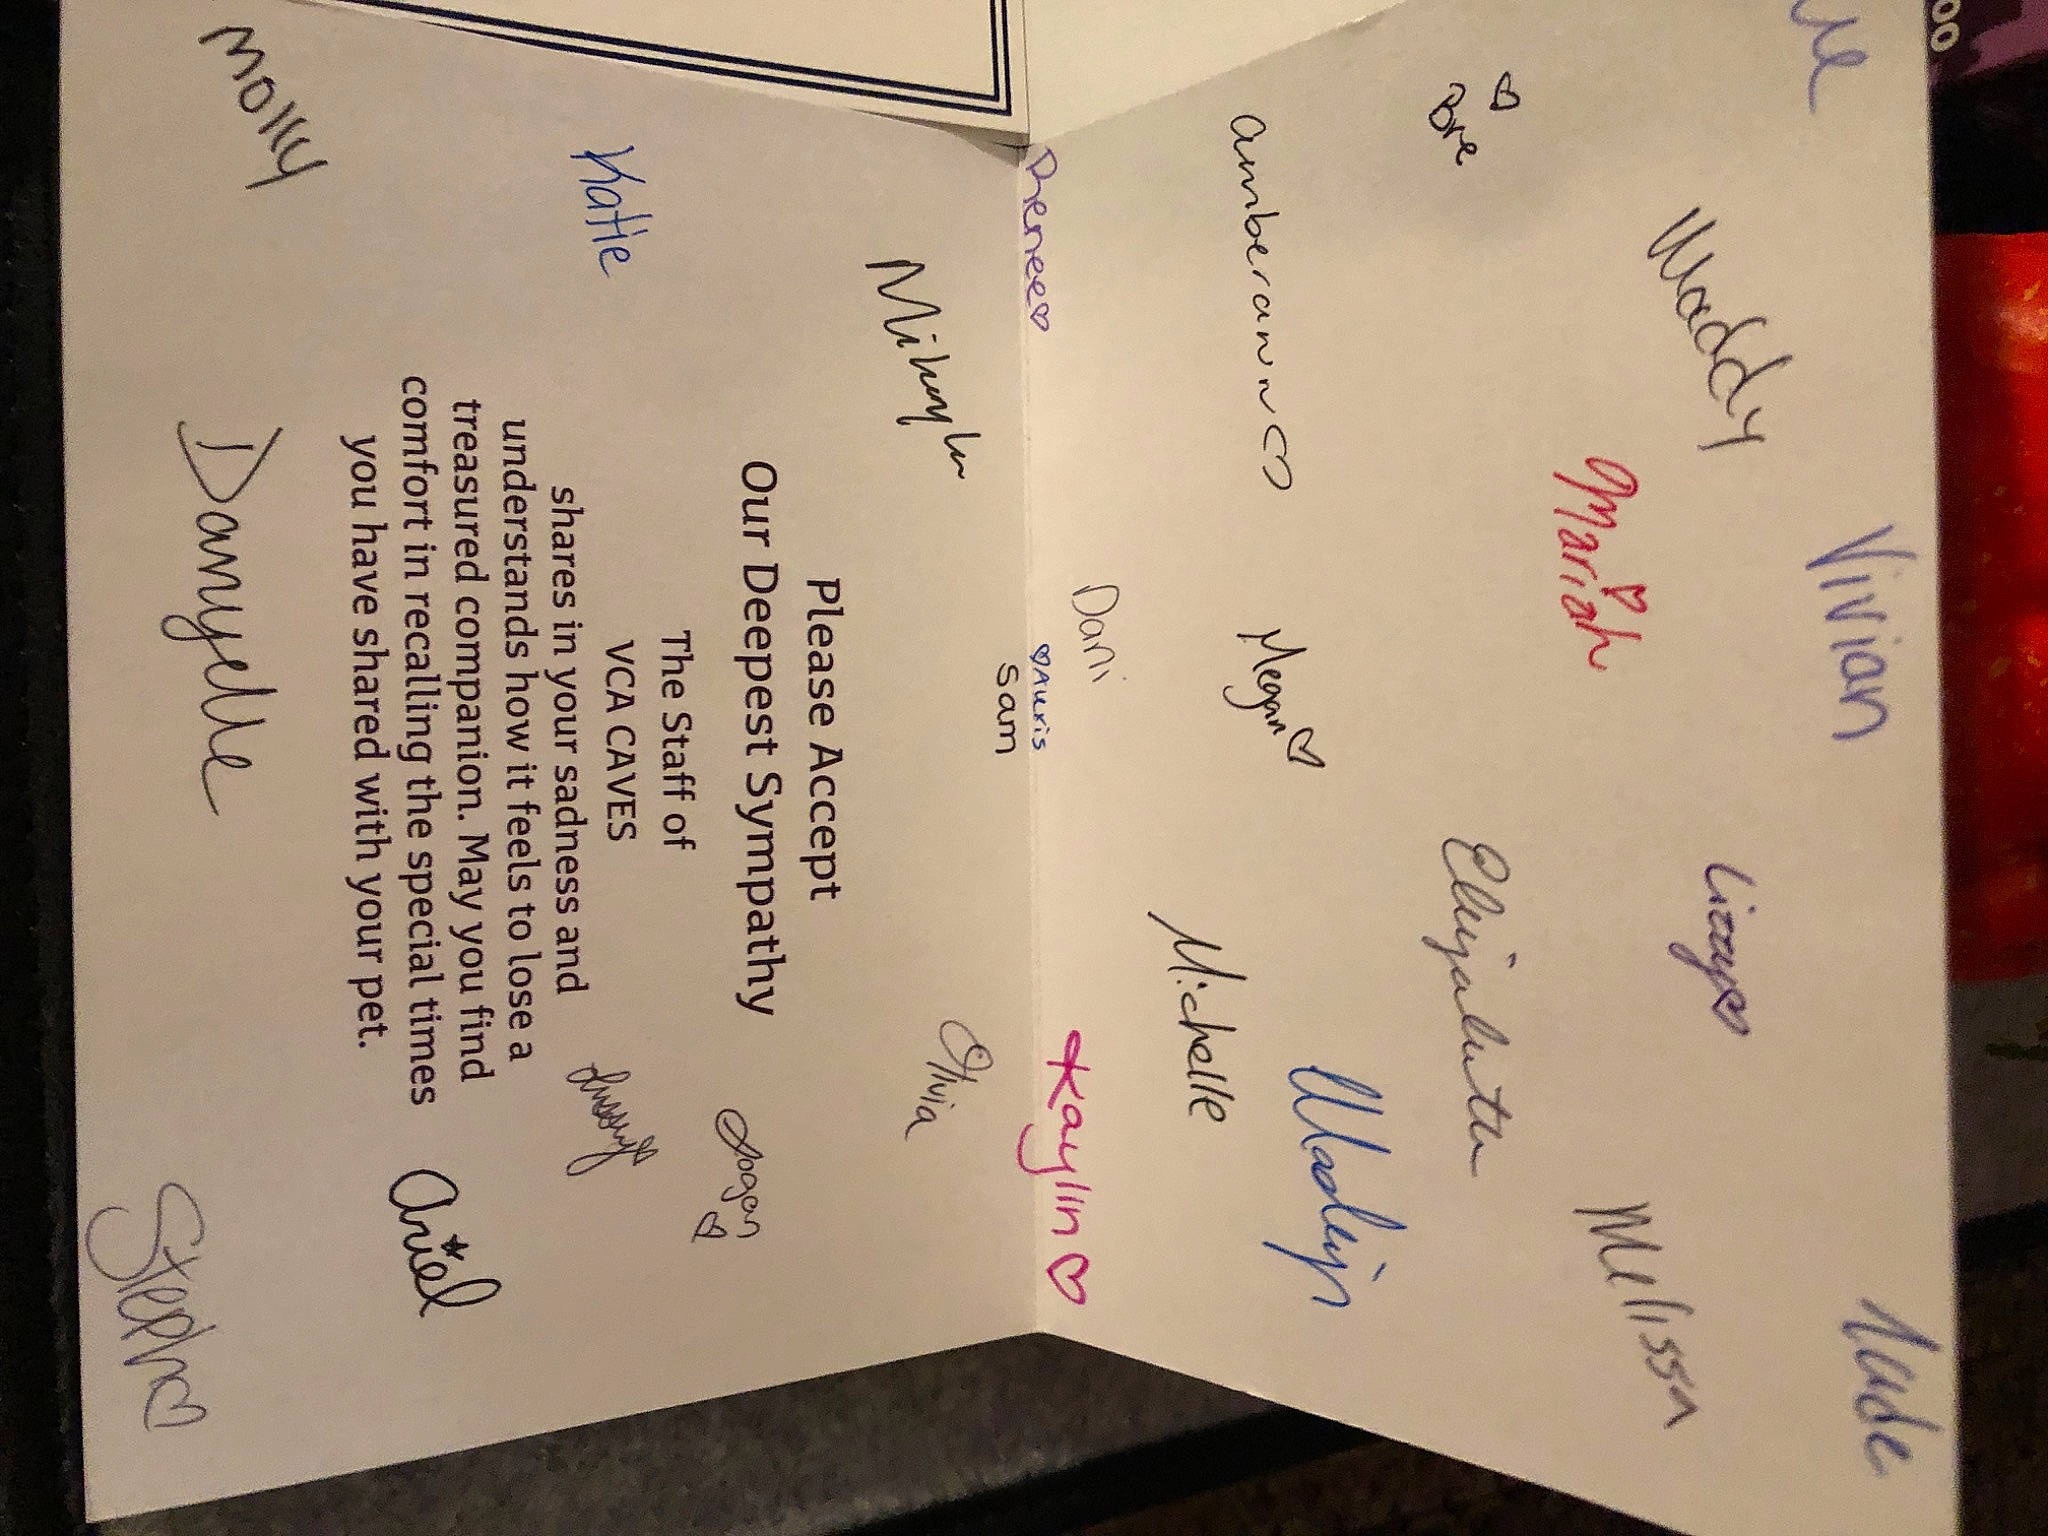 00
Vivian
Maddy
Lizzy
Mariah
Melissa
Bre
amberann
Megan
Madelyn
Michelle
Dani
Renee
Auris
Kaylin
sam
Olivia
Please Accept
Our Deepest Sympathy
The Staff of
VCA CAVES
shares in your sadness and
understands how it feels to lose a
treasured companion. May you find
comfort in recalling the special times
you have shared with your pet.
Katie
Logan
Ariel
Molly
Danyelle
Steph